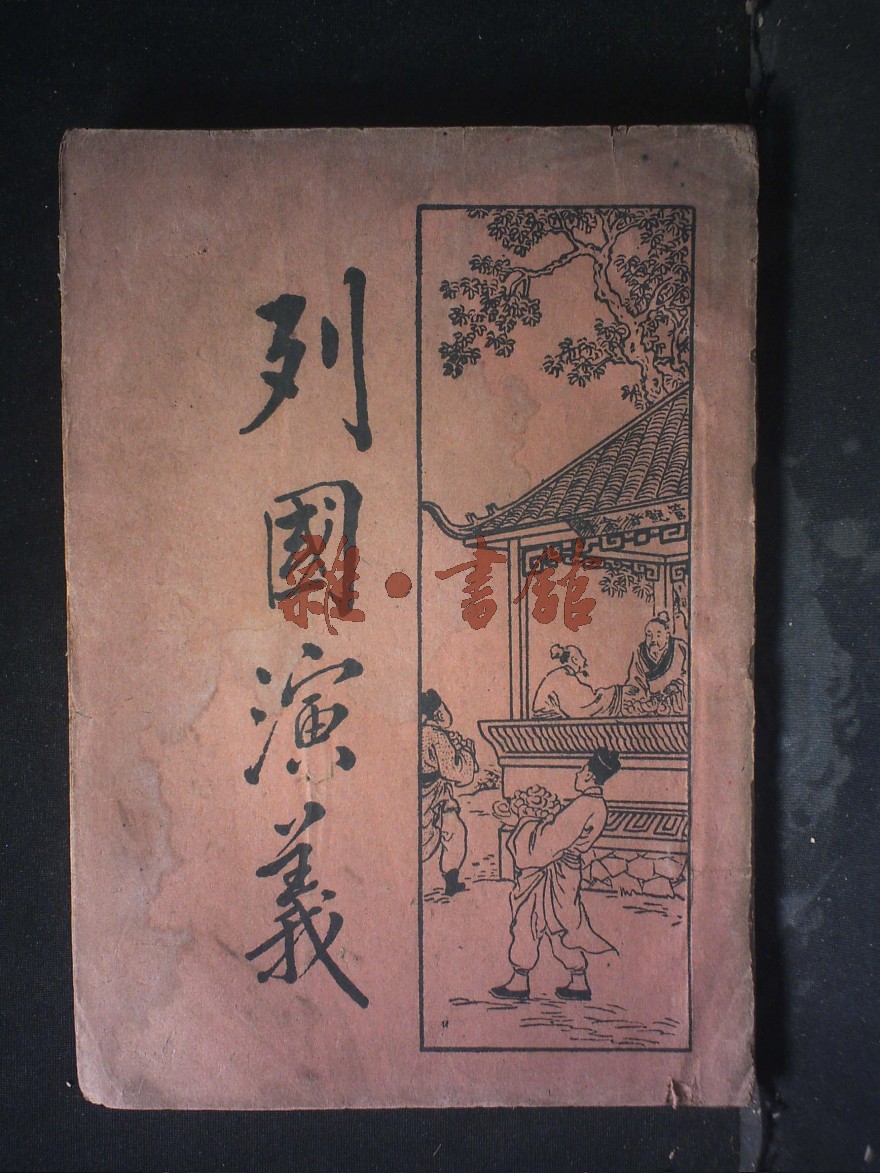 列國演義
雜·書館